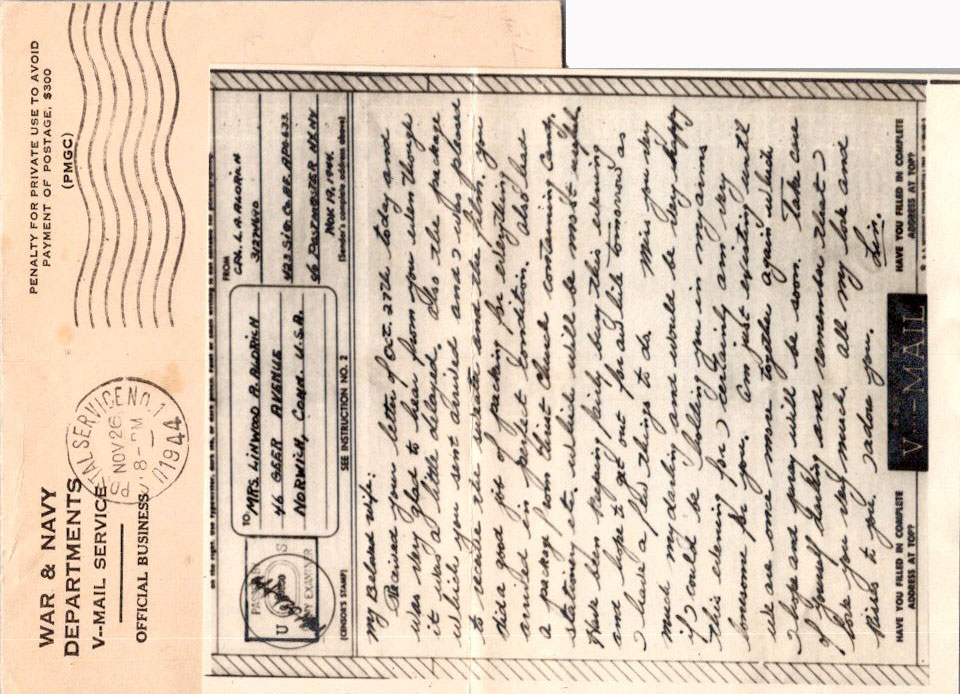 WAR & NAVY
DEPARTMENTS
V--MAIL SERVICE
OFFICIAL BUSINESS
POSTAL SERVICE NO. 1
NOV 26
8-PM
1944
PENALTY FOR PRIVATE USE TO AVOID
PAYMENT OF POSTAGE, $300
(PMGC)
PASSED BY
U S
ARMY EXAMINER
(CENSOR'S STAMP)
TO MRS. LINWOOD A. ALDRICH
46 GEER AVENUE
NORWICH, CONN. U.S.A.
SEE INSTRUCTION NO. 2
FROM
CPL. L. A. ALDRICH
31274640
423 SIG. CO. BE. APO 633
C/O POSTMASTER N.Y. NY
NOV. 19, 1944.
(Sender's complete address above)
My Beloved Wife:
Received your letter of Oct. 27th today and
was very glad to hear from you even though
it was a little delayed. Also the package
which you sent arrived and I was pleased
to receive the sweater and the film. You
did a good job of packing for everything
arrived in perfect condition. Also had
a package from Christ Church containing candy,
stationery etc. which will be most useful.
Have been keeping fairly busy this evening
and hope to get out for awhile tomorrow as
I have a few things to do. Miss you very
much my darling and would be very happy
if I could be holding you in my arms
this evening for I certainly am very
lonesome for you. Am just existing until
we are once more together again which
I hope and pray will be soon. Take care
of yourself darling and remember that I
love you very much. All my love and
Kisses to you. I adore you.
Lin.
HAVE YOU FILLED IN COMPLETE
ADDRESS AT TOP?
V--MAIL
HAVE YOU FILLED IN COMPLETE
ADDRESS AT TOP?